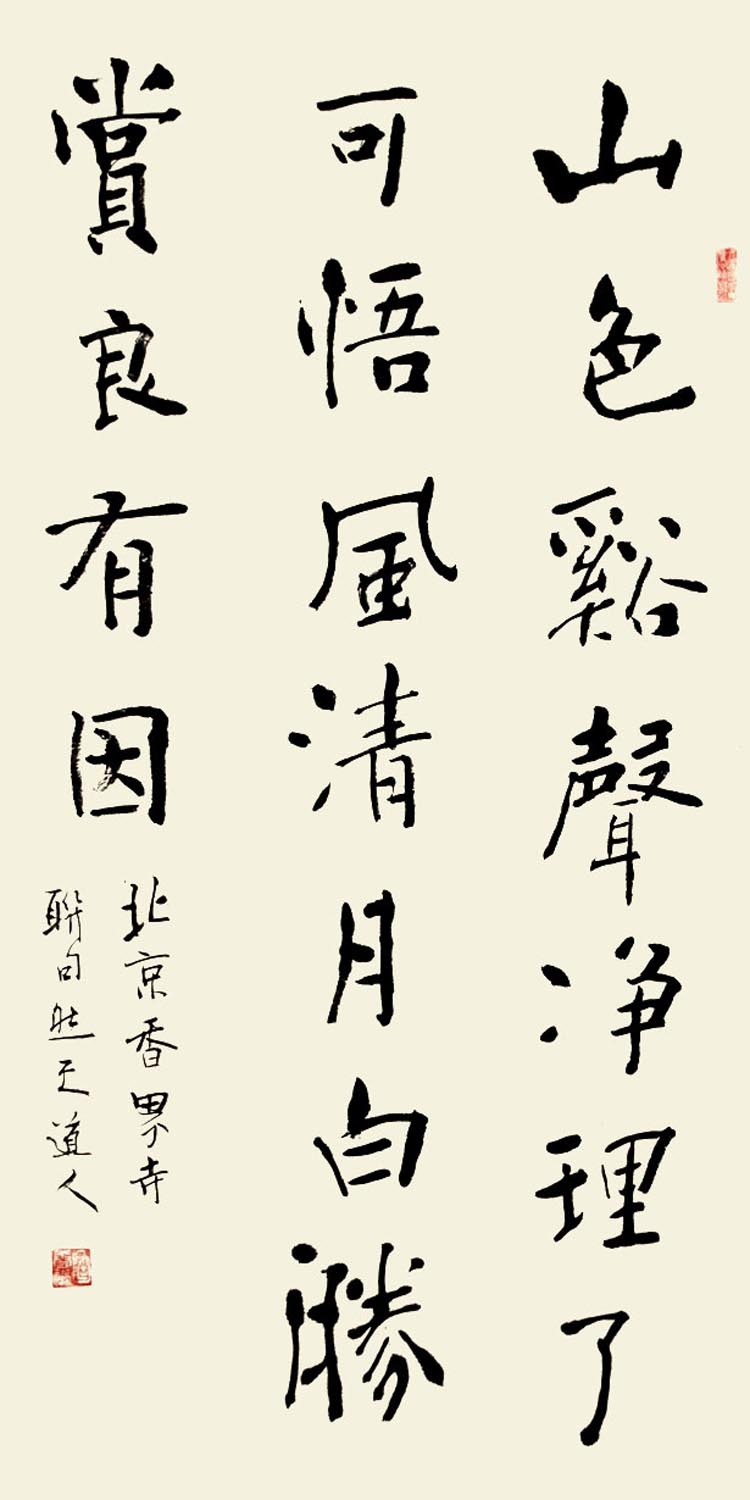 山色谿聲净理了
可悟風清月白勝
賞良有因
北京香界寺
聯句道人